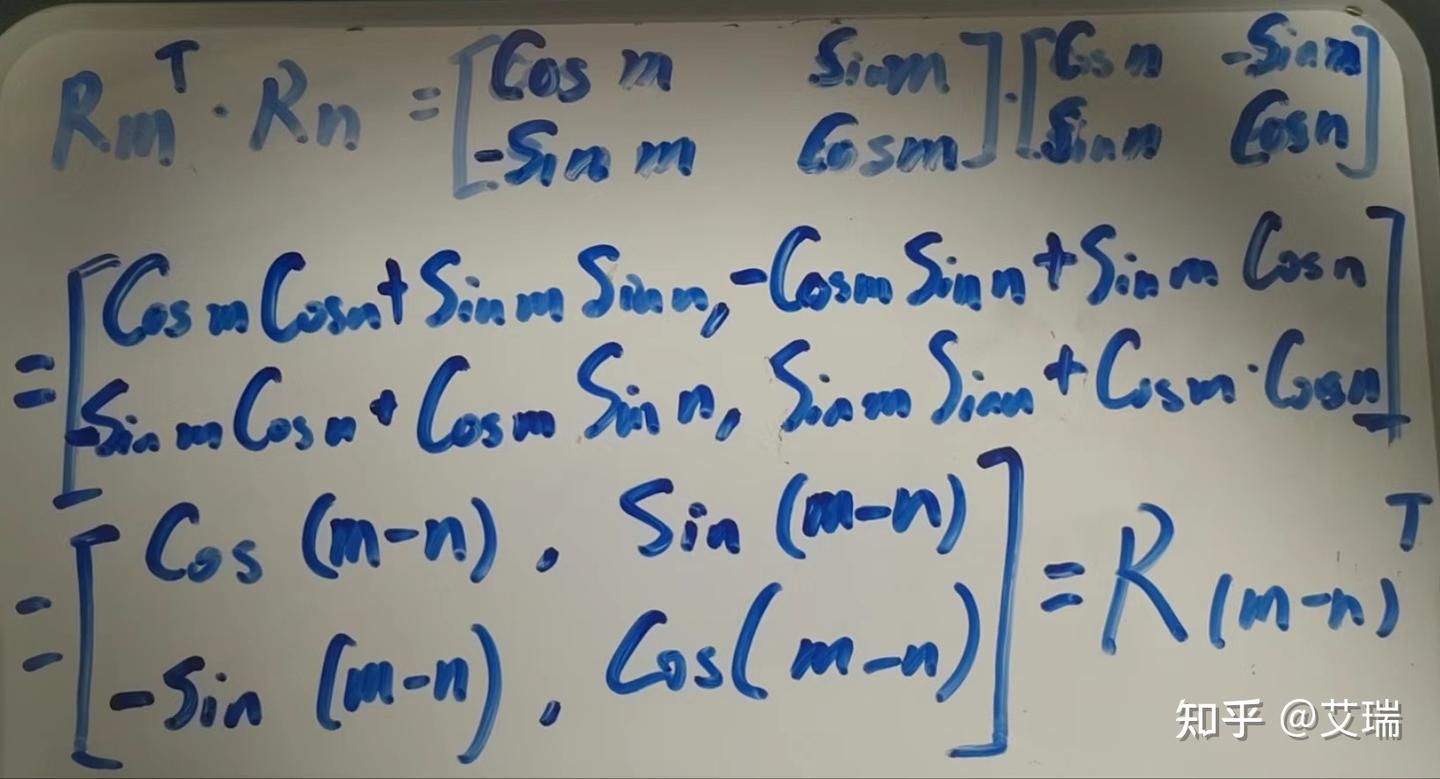 Rm^T · Rn = [Cos m Sinm] · [Cosn -Sinm]
[-Sin m Cosm] [Sinn Cosn]
= [Cosm Cosn + Sinm Sinn, -Cosm Sinn + Sinm Cosn]
[-Sinm Cosn + Cosm Sinn, Sinm Sinn + Cosm · Cosn]
= [Cos (m-n), Sin (m-n)] = R(m-n)^T
[-Sin (m-n), Cos(m-n)]
知乎 @艾瑞